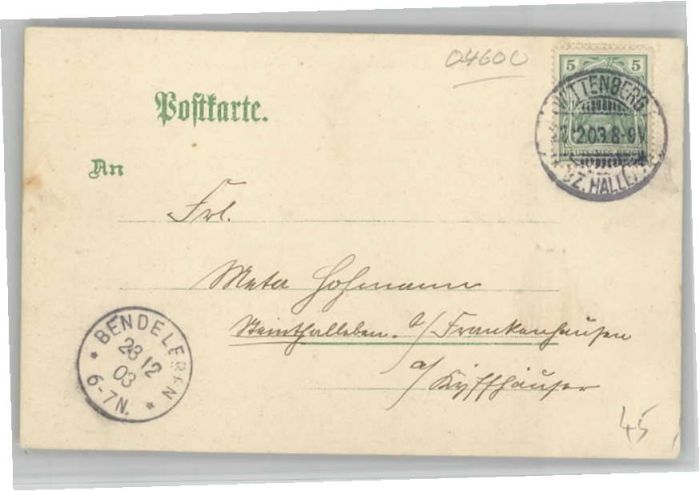 04600
5 5
WITTENBERG
12 03 8-9V
BZ. HALLE
Postkarte.
An
Frl.
Meta Hofmann
Steinthalleben. b/ Frankenhausen
a/ Kyffhäuser
BENDELEBEN
23 12
03
6-7N.
45